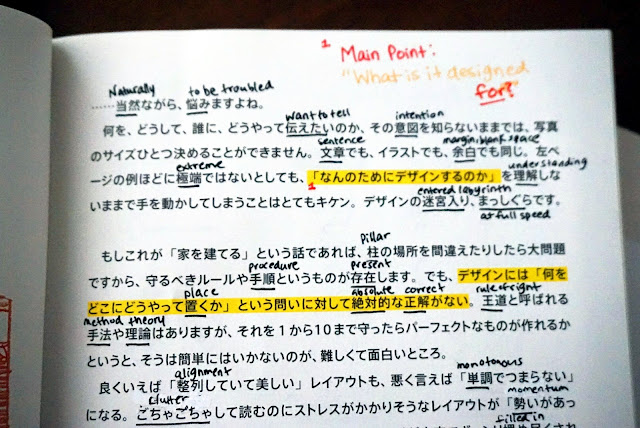 1 Main Point:
"What is it designed
for?"
Naturally to be troubled
……当然ながら、悩みますよね。
want to tell intention
何を、どうして、誰に、どうやって伝えたいのか、その意図を知らないままでは、写真
sentence margin; blank space
のサイズひとつ決めることができません。文章でも、イラストでも、余白でも同じ。左ペ
extreme understanding
ージの例ほどに極端ではないとしても、「なんのためにデザインするのか」を理解しな
1 entered labyrinth
いままで手を動かしてしまうことはとてもキケン。デザインの迷宮入り、まっしぐらです。
at full speed
pillar
もしこれが「家を建てる」という話であれば、柱の場所を間違えたりしたら大問題
procedure present
ですから、守るべきルールや手順というものが存在します。でも、デザインには「何を
place absolute correct rule of right
どこにどうやって置くか」という問いに対して絶対的な正解がない。王道と呼ばれる
method theory
手法や理論はありますが、それを1から10まで守ったらパーフェクトなものが作れるか
というと、そうは簡単にはいかないのが、難しくて面白いところ。
alignment monotonous
良くいえば「整列していて美しい」レイアウトも、悪く言えば「単調でつまらない」
clutter momentum
になる。ごちゃごちゃして読むのにストレスがかかりそうなレイアウトが「勢いがあっ
filled in